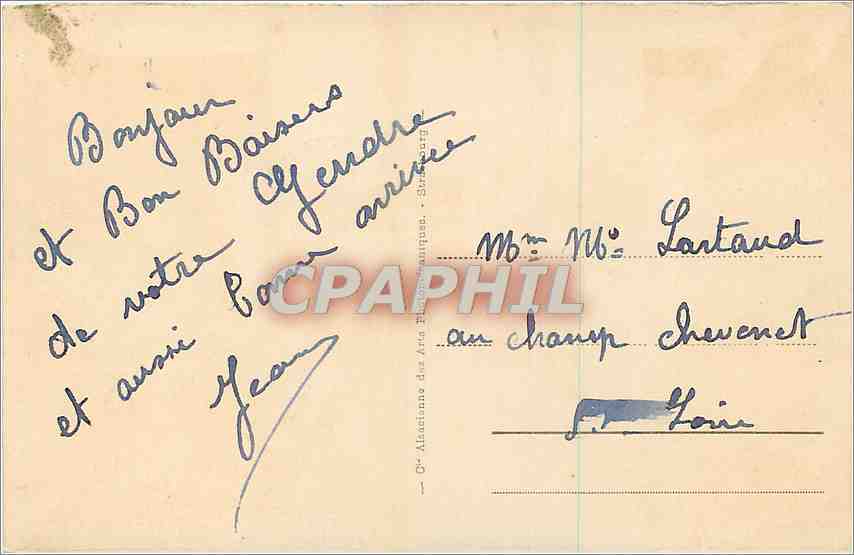 Bonjour
et Bon Baisers
de votre Gendre
et aussi bonne arrivee
Jean
Cie Alsacienne des Arts Photomécaniques. - Strasbourg
CPAPHIL
Mme Lartaud
au champ chevenet
Loire